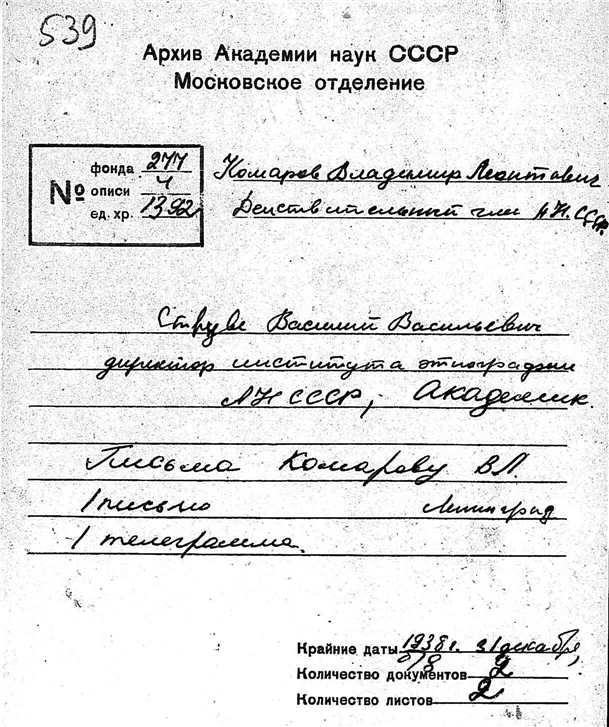 539
Архив Академии наук СССР
Московское отделение
№ фонда 277
описи 4
ед. хр. 1392
Комаров Владимир Леонтович
Действительный член АН. СССР.
Струве Василий Васильевич
директор института этнографии
АН СССР, Академик.
Письма Комарову В.Л.
1 письмо Ленинград
1 телеграмма.
Крайние даты 1938 г. 31 декабря,
б/д
Количество документов 2
Количество листов 2